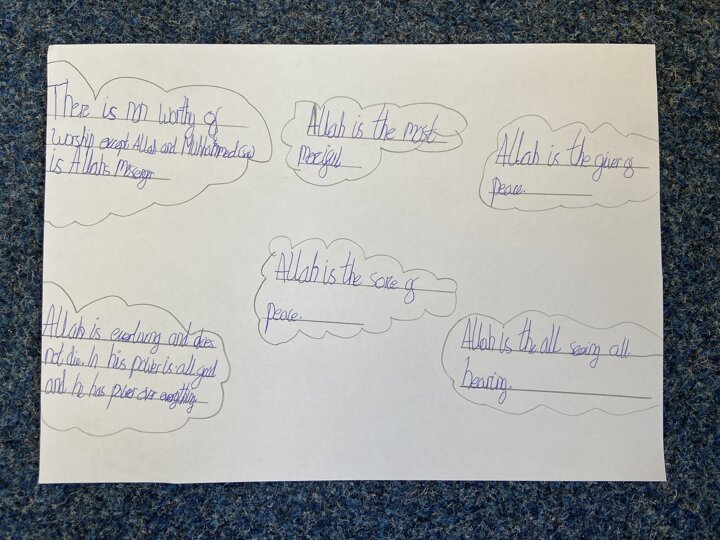 There is non worthy of
worship except Allah and Muhammed (saw)
is Allahs Misenger
Allah is the most
Merciful
Allah is the giver of
peace.
Allah is the sorce of
peace.
Allah is everliving and does
not die. In his power is all good
and he has power over everything
Allah is the all seeing all
hearing.